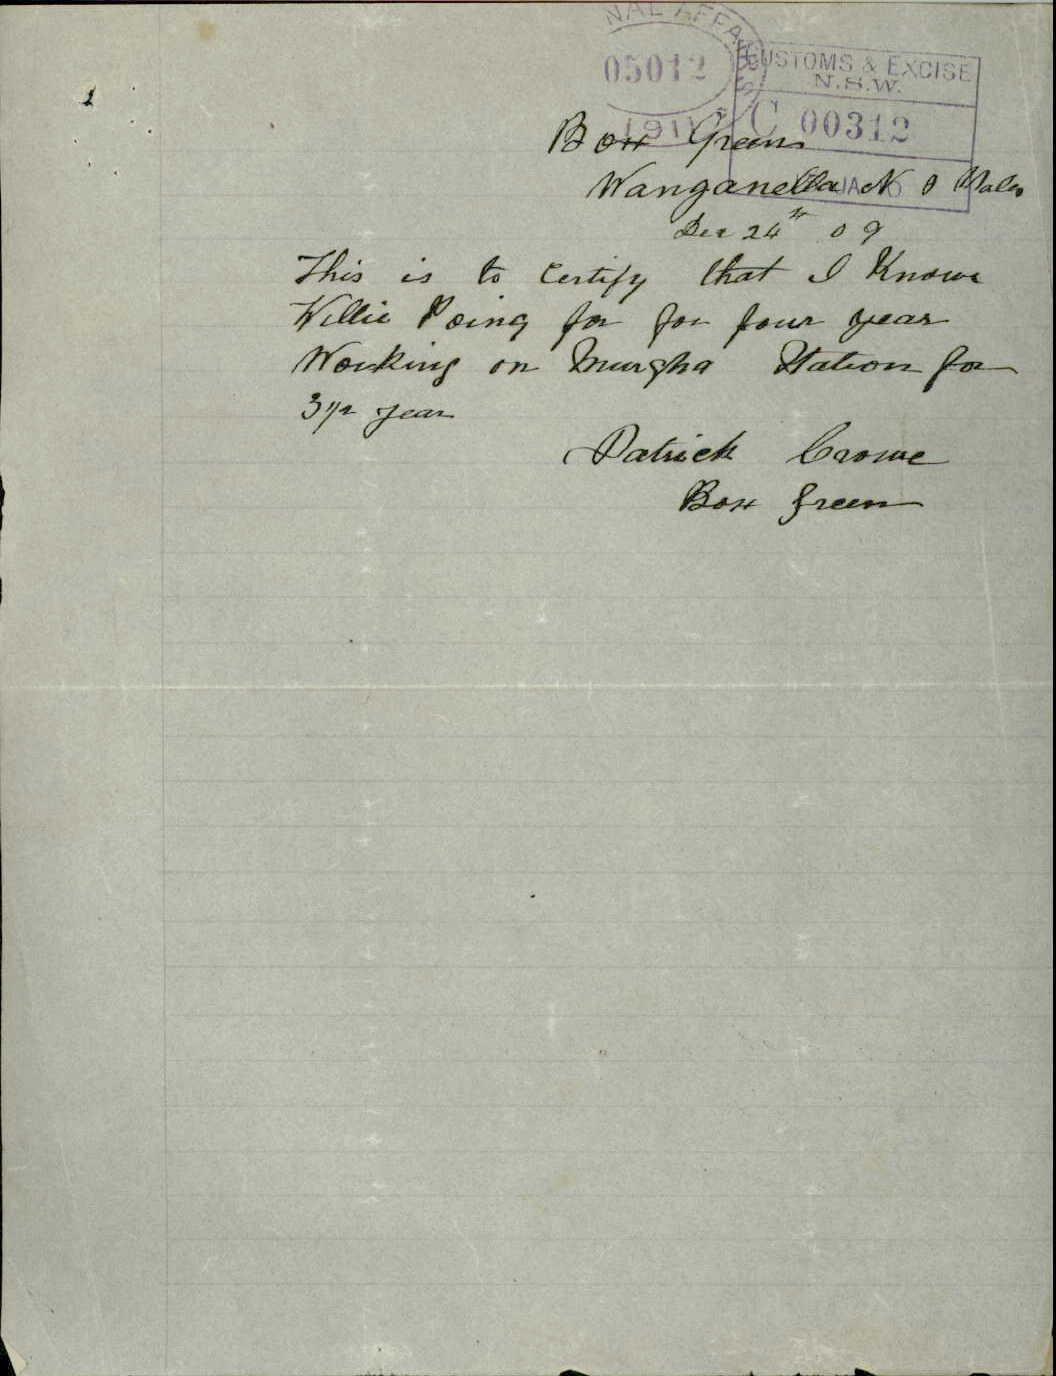 NAL AFFAIRS
05012
1910
CUSTOMS & EXCISE
N.S.W.
C 00312
1
Box Green
Wanganella N S Wales
Dec 24th 09
This is to Certify that I Knowe
Willie Poing for for four year
Working on Murgha Station for
3 1/2 year
Patrick Crowe
Box Green